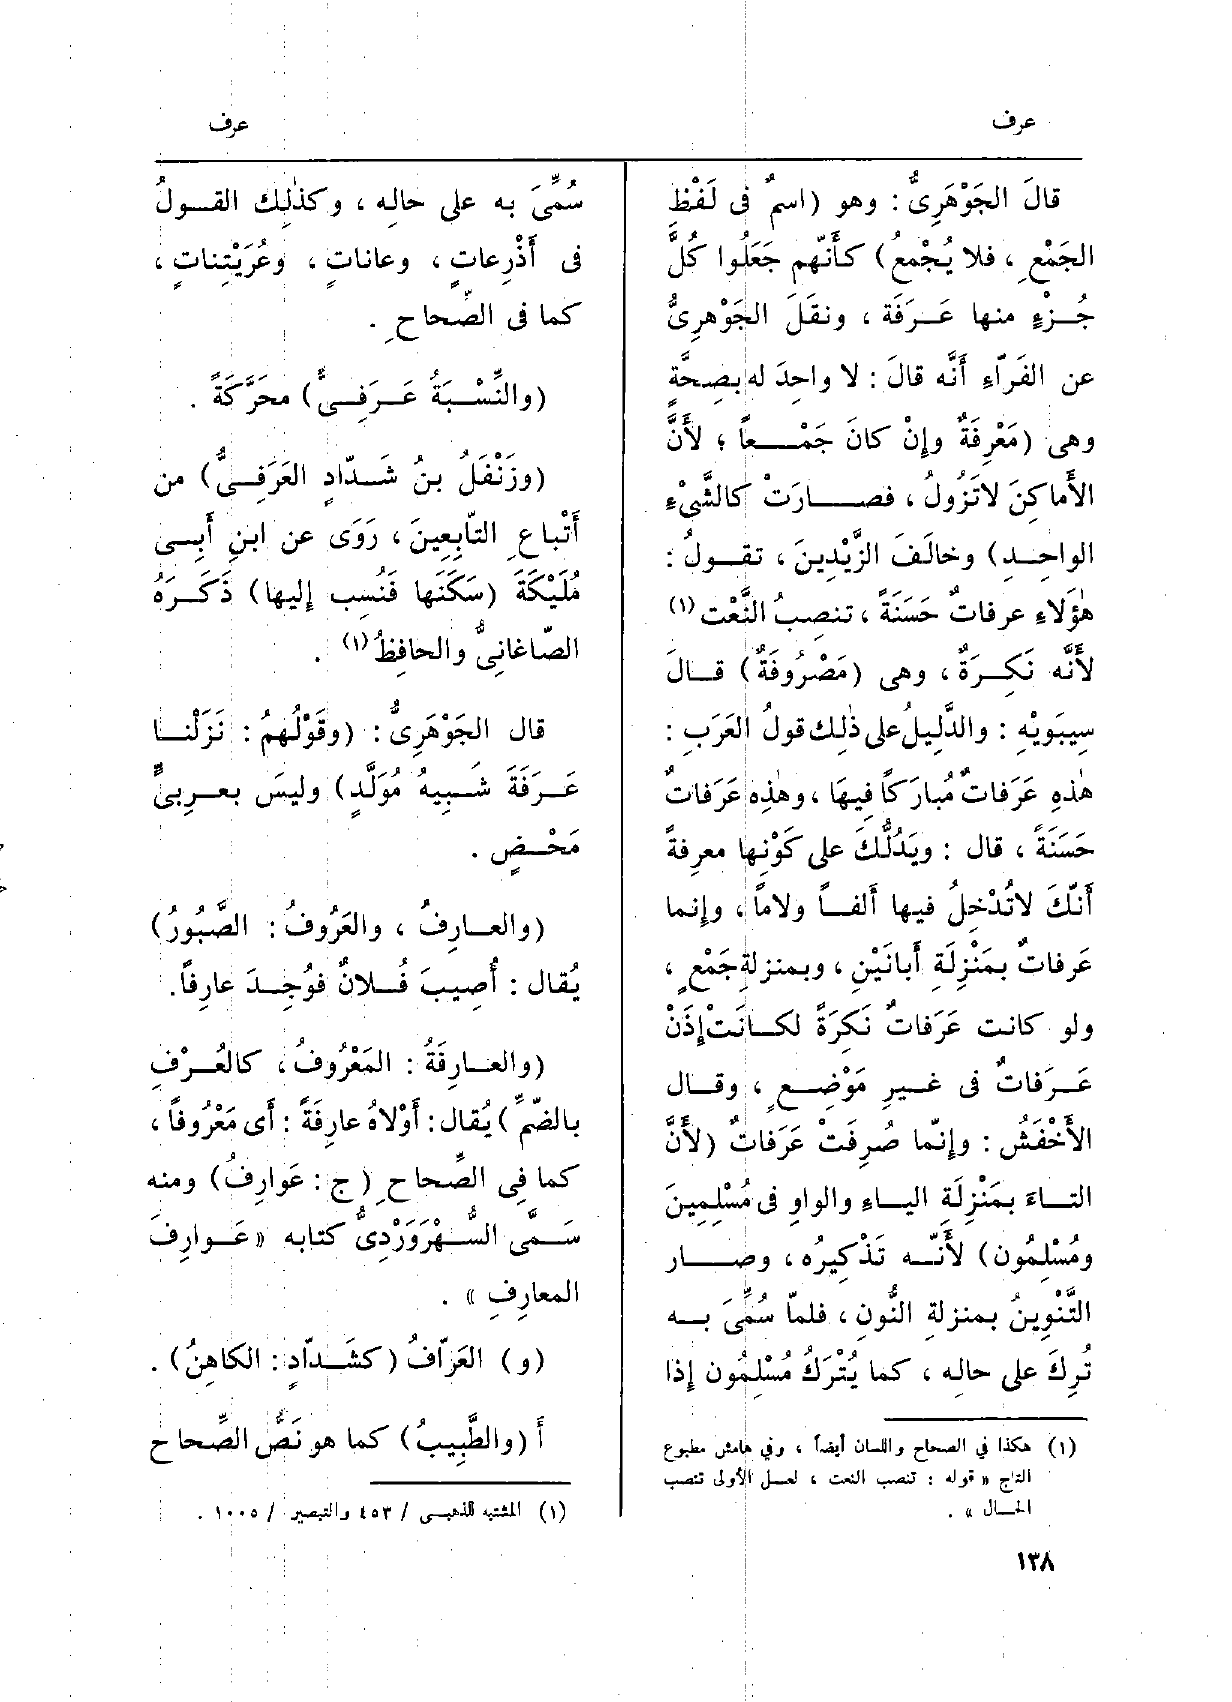 عرف
عرف
قالَ الجَوْهَرِىُّ : وهو (اسمٌ فى لَفْظِ
الجَمْعِ ، فلا يُجْمعُ) كأَنّهم جَعَلُوا كُلَّ
جُزْءٍ منها عَرَفَة ، ونقَلَ الجَوْهرِىُّ
عن الفَرّآءِ أَنَّه قالَ : لا واحِدَ له بصِحةٍ
وهى (مَعْرِفَةٌ وإِنْ كانَ جَمْعاً ؛ لأَنَّ
الأَماكِنَ لاتَزُولُ ، فصارَتْ كالشَّىْءِ
الواحِدِ) وخالَفَ الزَّيْدِينَ ، تقولُ :
هٰؤلاءِ عرفاتٌ حَسَنَةً ، تنصِبُ النَّعْت (١)
لأَنَّه نَكِرَةٌ ، وهى (مَصْرُوفَةٌ) قالَ
سِيبَويْهِ : والدَّلِيلُ على ذٰلِك قولُ العَرَبِ :
هٰذهِ عَرَفاتٌ مُبارَكاً فِيهَا ، وهٰذِه عَرَفاتٌ
حَسَنَةً ، قال : ويَدُلُّكَ على كَوْنِها معرِفةً
أَنّكَ لاتُدْخِلُ فيها أَلفاً ولاماً ، وإِنما
عَرفاتٌ بمَنْزِلَةِ أَبانَيْنِ ، وبمنزلةِ جَمْعٍ ،
ولو كانت عَرَفاتٌ نَكِرَةً لكانَتْ إِذَنْ
عَرَفاتٌ فى غيرِ مَوْضِعٍ ، وقال
الأَخْفَشُ : وإِنّما صُرِفَتْ عَرَفاتٌ (لأَنَّ
التاءَ بمَنْزِلَةِ الياءِ والواوِ فى مُسْلِمِينَ
ومُسْلِمُون) لأَنّه تَذْكِيرُه ، وصار
التَّنْوِينُ بمنزلةِ النُّونِ ، فلمّا سُمِّىَ به
تُرِكَ على حالِه ، كما يُتْرَكُ مُسْلِمُون إِذا
(١) هكذا في الصحاح واللسان أيضاً ، وفي هامش مطبوع
التاج « قوله : تنصب النعت ، لعل الأولى تنصب
الحال » .
سُمِّىَ به على حالِه ، وكذٰلِك القولُ
فى أَذْرِعاتٍ ، وعاناتٍ ، وعُرَيْتِناتٍ ،
كما فى الصّحاحِ .
(والنِّسْبَةُ عَرَفِىٌّ) محَرَّكَةً .
(وزَنْفَلُ بنُ شَدّادٍ العَرَفِىُّ) من
أَتْباعِ التّابِعِينَ ، رَوَى عن ابنِ أَبِى
مُلَيْكَةَ (سَكَنَها فَنُسِب إِليها) ذَكَرَهُ
الصّاغانِىُّ والحافِظُ (١) .
قال الجَوْهَرِىُّ : (وقَوْلُهمُ : نَزَلْنا
عَرَفَةَ شَبِيهُ مُوَلَّدٍ) وليسَ بعربِىٍّ
مَحْضٍ .
(والعارِفُ ، والعَرُوفُ : الصَّبُورُ)
يُقال : أُصِيبَ فُلانٌ فوُجِدَ عارِفاً.
(والعارِفَةُ : المَعْرُوفُ ، كالعُرْفِ
بالضّمِّ) يُقال : أَوْلاهُ عارِفَةً : أَى مَعْرُوفاً ،
كما فِى الصِّحاحِ (ج : عَوارِفُ) ومنه
سَمَّى السُّهْرَوَرْدِىُّ كتابه « عَوارِفَ
المعارِفِ » .
(و) العَرّافُ (كشَدّادٍ : الكاهِنُ) .
أَ (والطَّبِيبُ) كما هو نَصُّ الصِّحاح
(١) المشتبه للذهبى / ٤٥٣ والتبصير / ١٠٠٥ .
١٣٨